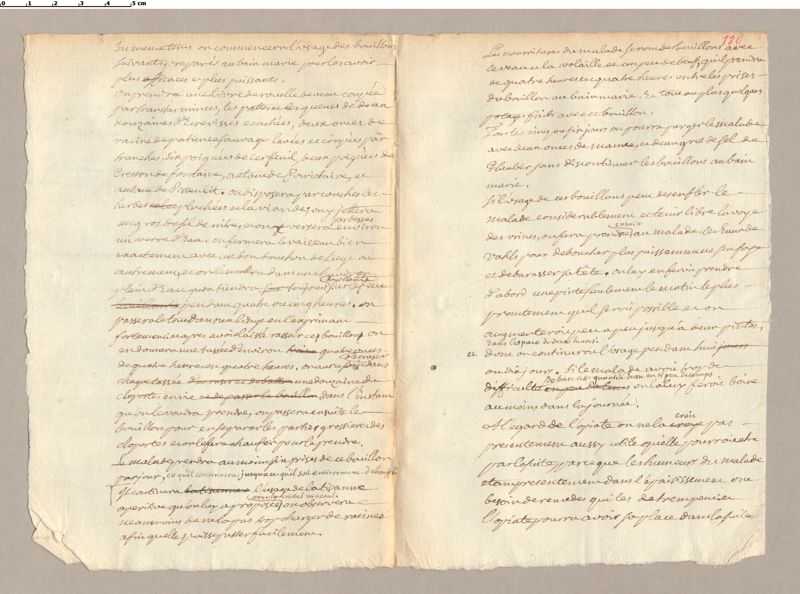 0 1 2 3 4 5 cm
En mesme tems on commencera l'usage des bouillons
suivants, preparés au bain marie pour les avoir
plus efficaces et plus puissants.
On prendra une livre de rouelle de veau coupée
par tranches minces, les pattes et les queues de deux
douzaines d'Ecrevisses ecachées, deux onces de
racine de patience sauvage lavées et coupées par
tranches, six poignées de cerfeuil, deux poignées de
Cresson de fontaine, autant de Parietaire, et
autant de Pissenlit. on disposera par couches les
herbes epluchées et la viande, on y jettera
un gros de sel de nitre, on y versera par dessus environ
un verre d'Eau, on fermera le vaisseau bien
exactement avec un bon bouchon de Liege ou
autrement, et on le mettra dans un chaudron
plein d'Eau bouillante qu'on tiendra toujours sur le feu
pendant quatre ou cinq heures. on
passera le tout dans un linge en l'exprimant
fortement apres avoir laissé rassoir ces bouillons on
en donnera une tasse d'environ quatre onces
de quatre heures en quatre heures, on aura soin d'ecraser dans
chaque tasse une douzaine de
cloportes en vie dans l'instant
qu'on le voudra prendre, on passera ensuite le
bouillon pour en separer les parties grossieres des
cloportes et on le fera chauffer pour le prendre.
Le malade prendra au moins six prises de ce bouillon
par jour, ce qu'il continuera jusqu'a ce qu'il soit entierement desenflé
Il continuera l'usage de la tisanne
aperitive qu'on luy a proposée, on observera
neanmoins de ne la pas trop charger de racines
afin quelle puisse passer facilement.
120
Les nourritures du malade seront des bouillons avec
le veau et la volaille et un peu de bœuf, qu'il prendra
de quatre heures en quatre heures entre les prises
du bouillon au bain marie. Et tout au plus quelques
potages faits avec ce bouillon.
Tous les cinq ou six jours on pourra purger le malade
avec deux onces de manne, et deux gros de sel de
Glauber sans discontinuer les bouillons au bain
marie.
Si l'usage de ces bouillons peut desenfler le
malade considerablement et tenir libre la voye
des urines, on fera prendre ensuite au malade les Eaux de
Vahls pour deboucher plus puissamment son foye
et debarasser sa tête. on luy en fera prendre
d'abord une pinte seulement le matin le plus
promptement qu'il sera possible et on
augmentera peu a peu jusqu'a deux pintes,
dans l'espace de deux heures.
et dont on continuera l'usage pendant huit jours
ou dix jours. Si le malade avoit trop de
difficulté de boire cette quantité d'eau en si peu de temps
on la luy feroit boire
au moins dans la journée.
A l'egard de l'opiate on ne la croit pas
presentement aussy utile qu'elle pourra être
par la suite, parce que les humeurs du malade
etant presentement dans l'epaississement ont
besoin de remedes qui les detrempent et
l'opiate pourra avoir sa place dans la suite